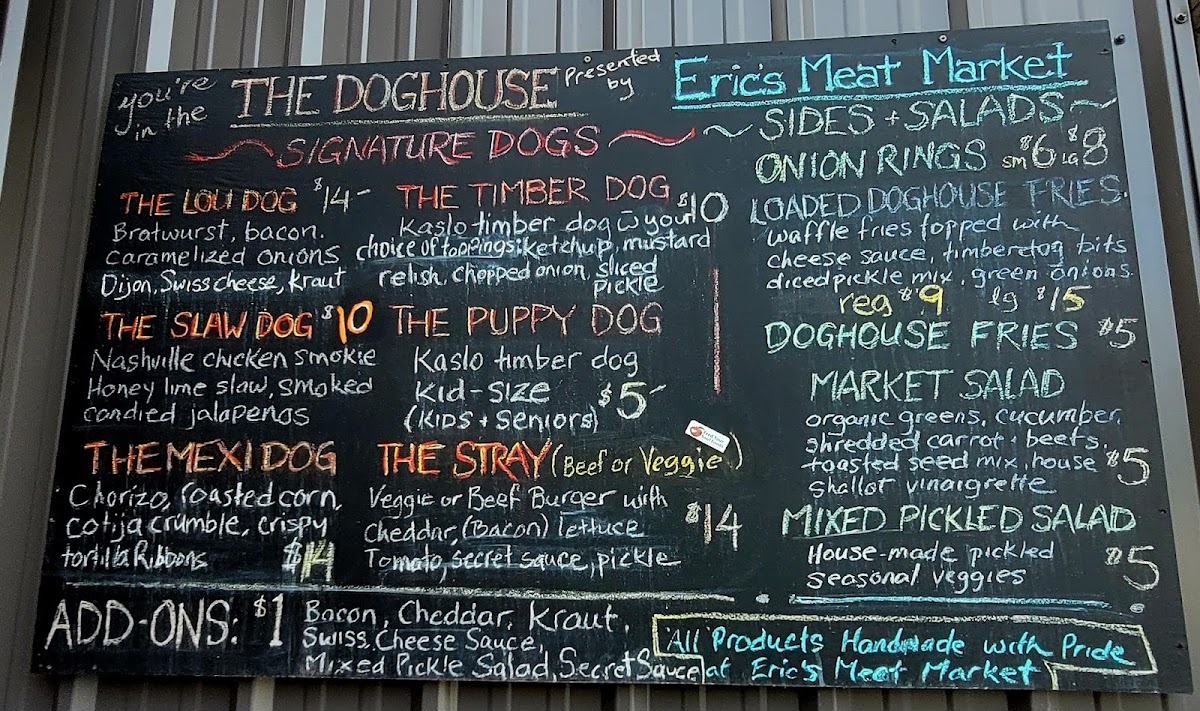 you're in the
THE DOGHOUSE
Presented by
Eric's Meat Market
SIGNATURE DOGS
THE LOU DOG $14-
Bratwurst, bacon.
caramelized onions
Dijon, Swiss cheese, kraut
THE SLAW DOG $10
Nashville chicken smokie
Honey lime slaw, smoked
candied jalapenos
THE MEXI DOG
Chorizo, roasted corn,
cotija crumble, crispy
tortilla Ribbons $14
THE TIMBER DOG $10
Kaslo timber dog w your
choice of toppings: ketchup, mustard
relish, chopped onion, sliced
pickle
THE PUPPY DOG
Kaslo timber dog
Kid-size $5-
(KIDS + Seniors)
THE STRAY (Beef or Veggie)
Veggie or Beef Burger with
Cheddar, (Bacon) lettuce $14
Tomato, secret sauce, pickle
~ SIDES + SALADS ~
ONION RINGS sm $6 LG $8
LOADED DOGHOUSE FRIES
waffle fries topped with
cheese sauce, timberdog bits
diced pickle mix, green onions
reg $9 lg $15
DOGHOUSE FRIES $5
MARKET SALAD
organic greens, cucumber,
shredded carrot + beets,
toasted seed mix, house $5
shallot vinaigrette
MIXED PICKLED SALAD
House-made pickled $5
seasonal veggies
ADD-ONS: $1 Bacon, Cheddar, Kraut,
Swiss, Cheese Sauce,
Mixed Pickle Salad, Secret Sauce
All Products Handmade with Pride
at Eric's Meat Market